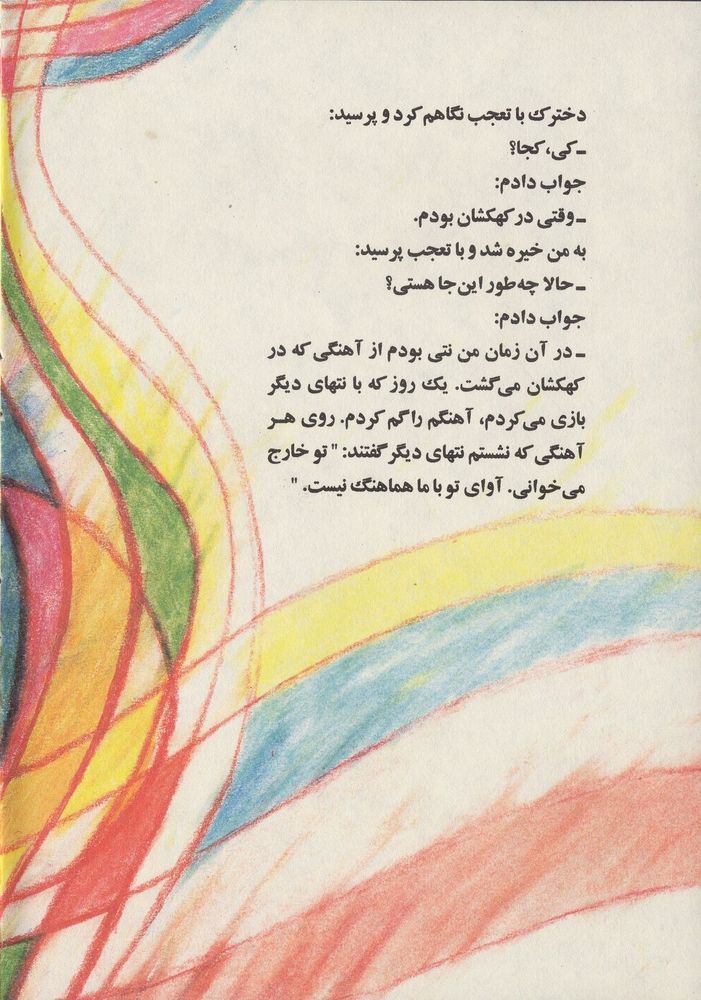 دخترک با تعجب نگاهم کرد و پرسید:
ـ کی، کجا؟
جواب دادم:
ـ وقتی در کهکشان بودم.
به من خیره شد و با تعجب پرسید:
ـ حالا چه‌طور این‌جا هستی؟
جواب دادم:
ـ در آن زمان من نتی بودم از آهنگی که در
کهکشان می‌گشت. یک روز که با نتهای دیگر
بازی می‌کردم، آهنگم را گم کردم. روی هر
آهنگی که نشستم نتهای دیگر گفتند: " تو خارج
می‌خوانی. آوای تو با ما هماهنگ نیست. "